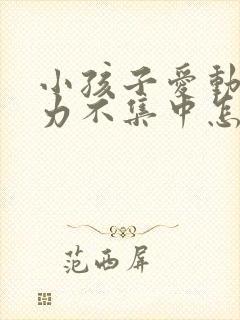 小孩子愛動
力不集中怎
范西屏